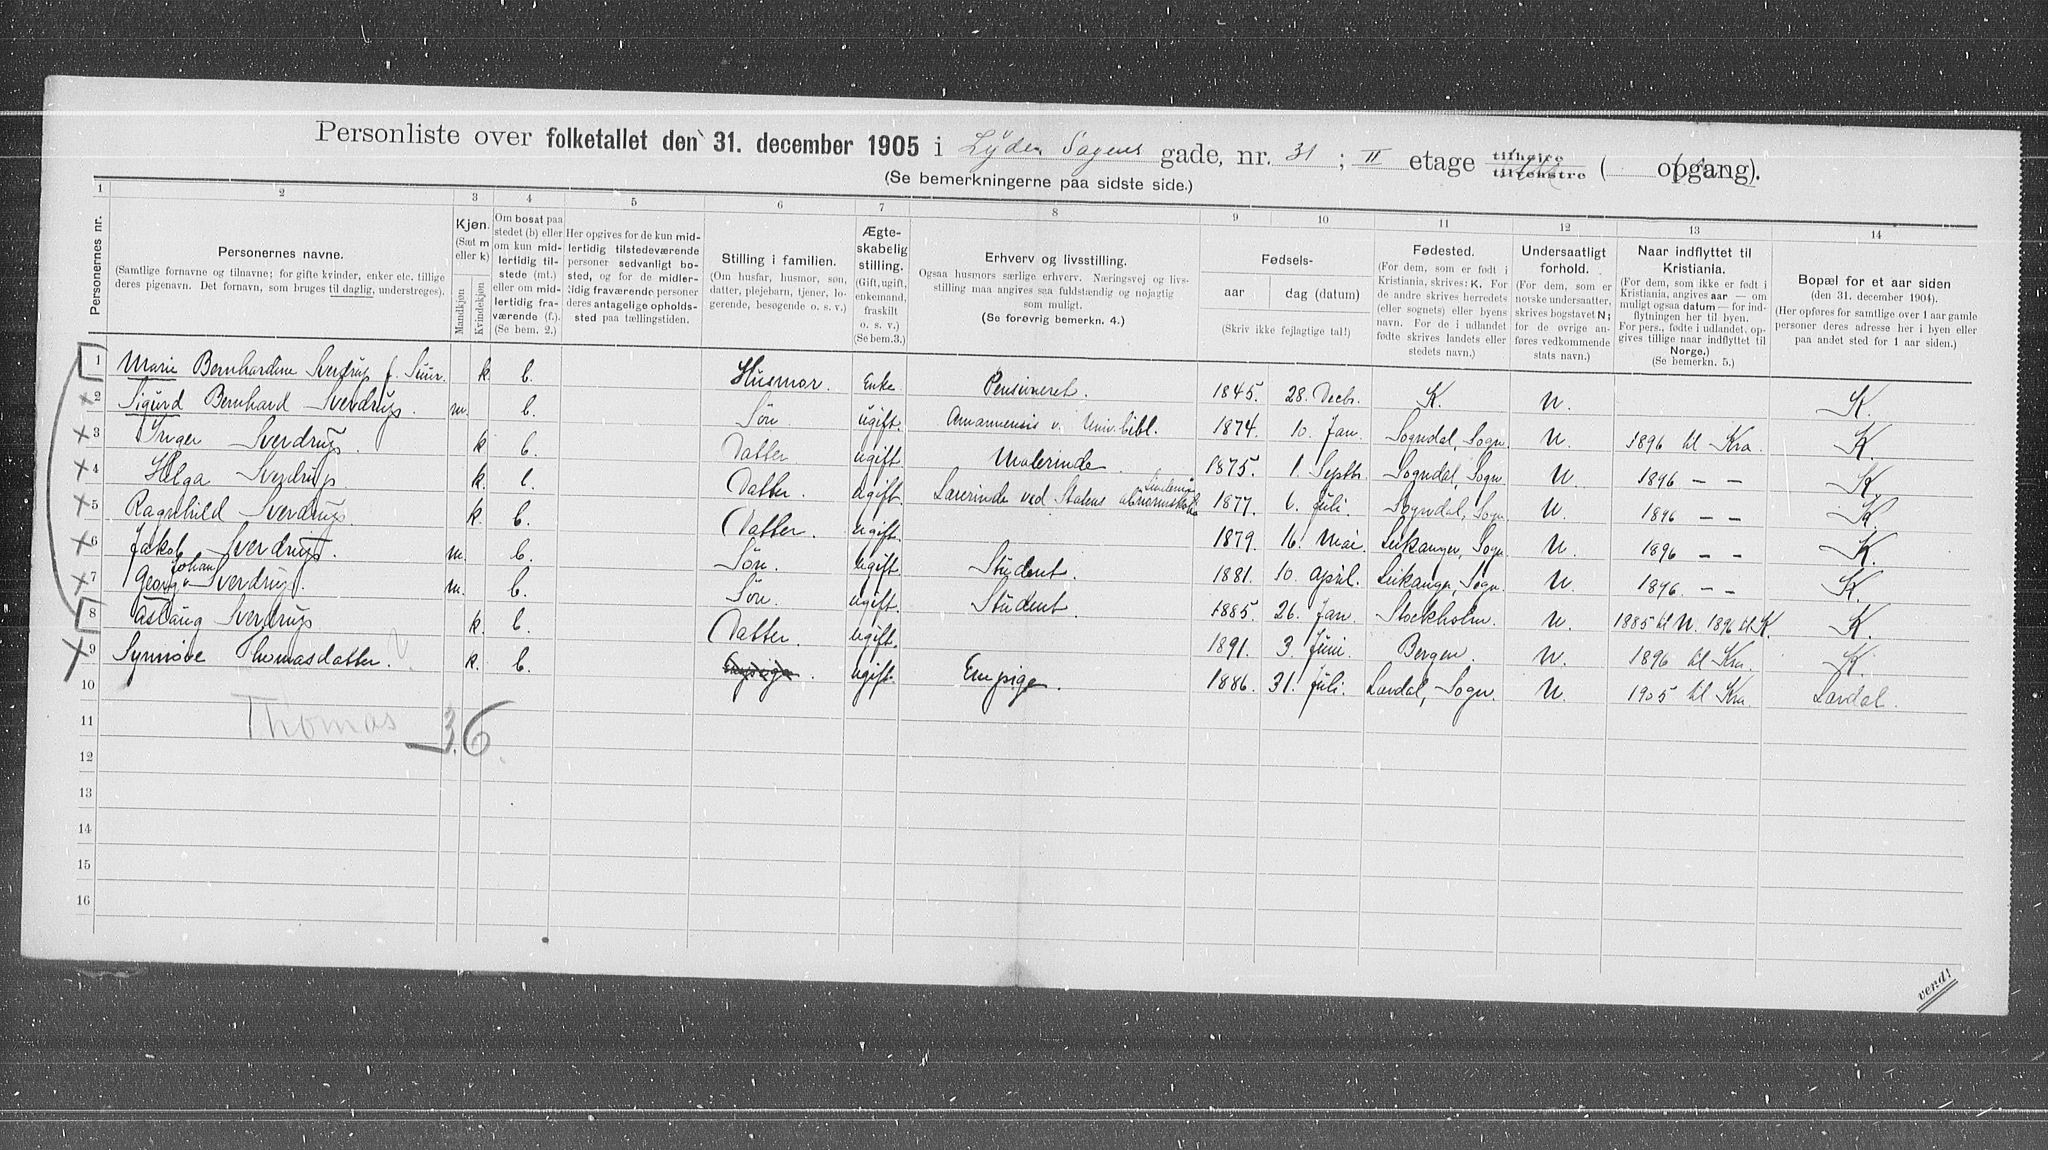 Personliste over folketallet den 31. december 1905 i Lyder Sagens gade, nr. 31 ; II etage tilhøire tilvenstre ( opgang).
(Se bemerkningerne paa sidste side.)
1 2 3 4 5 6 7 8 9 10 11 12 13 14
Personernes nr.
Personernes navne.
(Samtlige fornavne og tilnavne; for gifte kvinder, enker etc. tillige
deres pigenavn. Det fornavn, som bruges til daglig, understreges).
Kjøn.
(Sæt m
eller k)
Mandkjøn
Kvindekjøn
Om bosat paa
stedet (b) eller
om kun mid-
lertidig til-
stede (mt.)
eller om mid-
lertidig fra-
værende (f.).
(Se bem. 2.)
Her opgives for de kun mid-
lertidig tilstedeværende
personer sedvanligt bo-
sted, og for de midler-
tidig fraværende personer
deres antagelige opholds-
sted paa tællingstiden.
Stilling i familien.
(Om husfar, husmor, søn,
datter, plejebarn, tjener, lo-
gerende, besøgende o. s. v.)
Ægte-
skabelig
stilling.
(Gift, ugift,
enkemand,
fraskilt
o. s. v.)
(Se bem.3.)
Erhverv og livsstilling.
Ogsaa husmors særlige erhverv. Næringsvej og livs-
stilling maa angives saa fuldstændig og nøjagtig
som muligt.
(Se forøvrig bemerkn. 4.)
Fødsels-
aar dag (datum)
(Skriv ikke fejlagtige tal!)
Fødested.
(For dem, som er født i
Kristiania, skrives: K. For
de andre skrives herredets
(eller sognets) eller byens
navn. For de i udlandet
fødte skrives landets eller
stedets navn.)
Undersaatligt
forhold.
(For dem, som er
norske undersaatter,
skrives bogstavet N;
for de øvrige an-
føres vedkommende
stats navn.)
Naar indflyttet til
Kristiania.
(For dem, som ikke er født i
Kristiania, angives aar — om
muligt ogsaa datum — for ind-
flytningen her til byen.
For pers., fødte i udlandet, op-
gives tillige naar indflyttet til
Norge.)
(Se bemerkn. 5.)
Bopæl for et aar siden
(den 31. december 1904).
(Her opføres for samtlige over 1 aar gamle
personer deres adresse her i byen eller
paa andet sted for 1 aar siden.)
1 Marie Bernhardine Sverdrup f. k b. Husmor. Enke Pensioneret. 1845. 28. Decbr. K. N. K.
2 Sigurd Bernhard Sverdrup. m. b. Søn ugift. Amanuensis v. Univ.bibl. 1874. 10. Jan. Sogndal, Sogn. N. 1896 til Kra K.
3 Inger Sverdrup. k b. Datter ugift Malerinde. 1875. 1. Septbr. Sogndal, Sogn N 1896 — — K.
4 Helga Sverdrup. k. b. Datter. ugift. Lærerinde ved Statens 1877. 6. Juli. Sogndal, Sogn N. 1896 — — K.
5 Ragnhild Sverdrup. k. b. Datter. ugift. 1879. 16. Mai. Leikanger, Sogn. N. 1896 — — K.
6 Jakob Sverdrup. m. b. Søn. ugift. Student. 1881. 10. april. Leikanger, Sogn. N. 1896. — — K.
7 Georg Johan Sverdrup. m. b. Søn ugift. Student 1885. 26. Jan. Stockholm. N. 1885 til N. 1896 til K. K.
8 Aslaug Sverdrup k. b. Datter. ugift. 1891. 3. Juni. Bergen. N. 1896 til Kra. K
9 Synnøve Thomasdatter. k. b. ugift. Enepige. 1886. 31. Juli. Lærdal, Sogn. N. 1905 til Kra. Lærdal.
10
11 Thomas 36
12
13
14
15
16
vend!